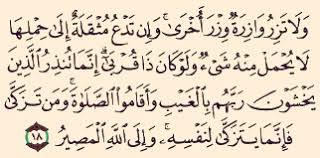 وَلَا تَزِرُ وَازِرَةٌ وِزْرَ أُخْرَىٰ ۚ وَإِن تَدْعُ مُثْقَلَةٌ إِلَىٰ حِمْلِهَا
لَا يُحْمَلْ مِنْهُ شَىْءٌ وَلَوْ كَانَ ذَا قُرْبَىٰٓ ۗ إِنَّمَا تُنذِرُ ٱلَّذِينَ
يَخْشَوْنَ رَبَّهُم بِٱلْغَيْبِ وَأَقَامُوا۟ ٱلصَّلَوٰةَ ۚ وَمَن تَزَكَّىٰ
فَإِنَّمَا يَتَزَكَّىٰ لِنَفْسِهِۦ ۚ وَإِلَى ٱللَّهِ ٱلْمَصِيرُ ١٨